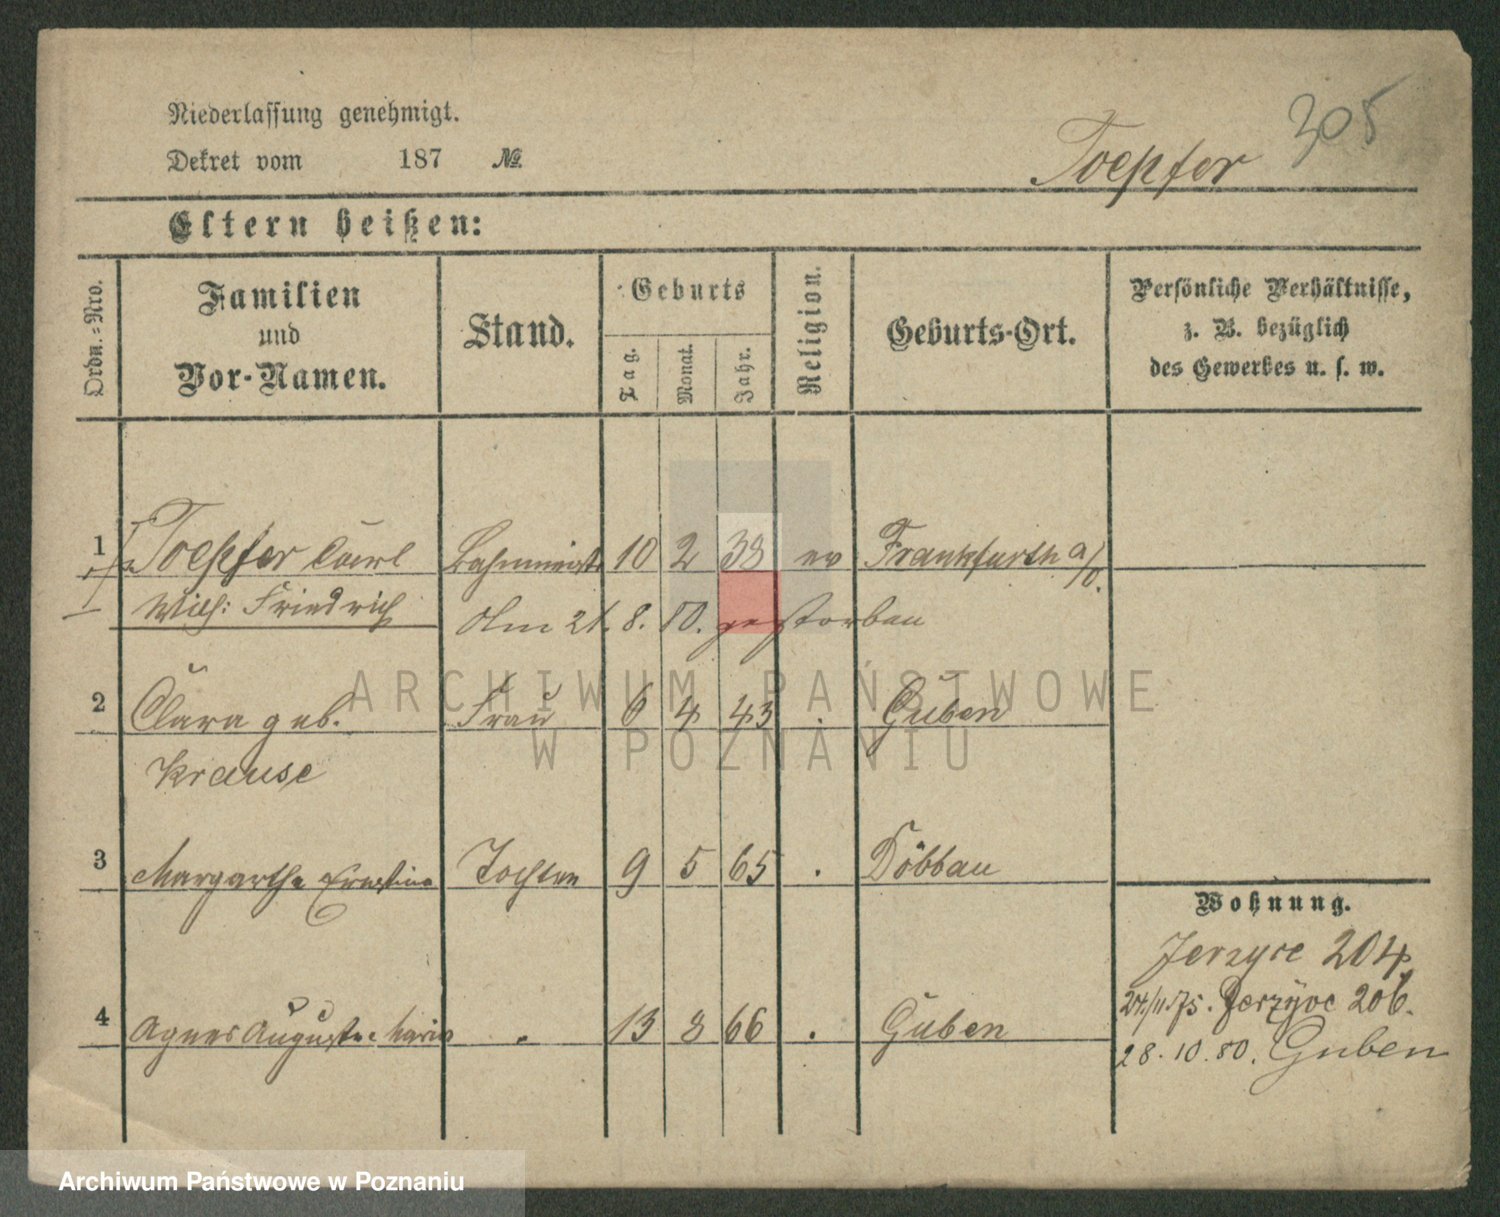 305
Niederlassung genehmigt.
Dekret vom 187 №
Toepfer
Eltern heißen:
Ordn.-Nro.
Familien und Vor-Namen.
Stand.
Geburts
Tag. Monat. Jahr.
Religion.
Geburts-Ort.
Persönliche Verhältnisse,
z. B. bezüglich
des Gewerbes u. s. w.
1 Toepfer Carl Bahnmeister 10 2 38 ev Frankfurth a/O.
Wilh: Friedrich Am 21. 8. 80. gestorben
2 Clara geb. Frau 6 4 43 . Guben
Krause
3 Margarethe Ernstine Tochter 9 5 65 .
4 Agnes Auguste Marie " 13 8 66 . Guben
Wohnung.
Jerzyce 204
24/11.75. Jerzyce 206.
28.10.80. Guben
ARCHIWUM PAŃSTWOWE
W POZNANIU
Archiwum Państwowe w Poznaniu